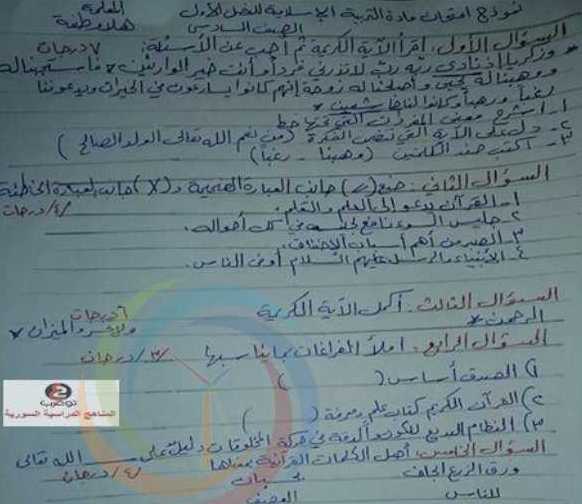 نموذج امتحان مادة التربية الإسلامية للفصل الأول
المعلمة
الصف السادس
هلا وطفة
السؤال الأول: اقرأ الآية الكريمة ثم أجب عن الأسئلة: ٧ درجات
* وزكريا إذ نادى ربه رب لا تذرني فرداً وأنت خير الوارثين * فاستجبنا له
ووهبنا له يحيى وأصلحنا له زوجه إنهم كانوا يسارعون في الخيرات ويدعوننا
رغباً ورهباً وكانوا لنا خاشعين *
١- اشرح معنى المفردات التي تحتها خط
٢- دل على الآية التي تتضمن الفكرة (من نعم الله تعالى الولد الصالح)
٣- اكتب ضد الكلمتين (وهبنا - رغباً)
السؤال الثاني: ضع (✓) جانب العبارة الصحيحة و (X) جانب العبارة الخاطئة
١- القرآن يدعو إلى العلم والتعلم. /٤/ درجات
٢- جليس السوء نافع لجليسه في كل أحواله.
٣- الصبر من أهم أسباب الإخفاق.
٤- الأنبياء والرسل عليهم السلام أوفى الناس.
السؤال الثالث: أكمل الآية الكريمة ٦ درجات
الرحمن * ولا تخسروا الميزان *
السؤال الرابع: املأ الفراغات بما يناسبها /٣/ درجات
١) الصدق أساس ( )
٢) القرآن الكريم كتاب علم ومعرفة ( )
٣) النظام البديع للكون والدقة في حركة المخلوقات دليل على ـــ الله تعالى
السؤال الخامس: أصل الكلمات القرآنية بمعناها /٤/ درجات
ورق الزرع الجاف بحسبان
للناس العصف
المناهج الدراسية السورية